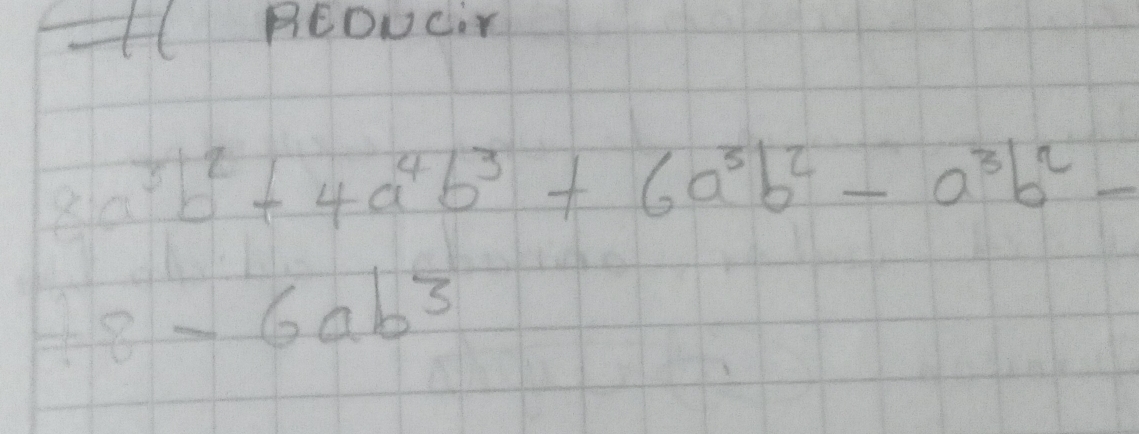 REDUCir
8a³b² + 4a⁴b³ + 6a³b² - a³b² -
+8 - 6ab³